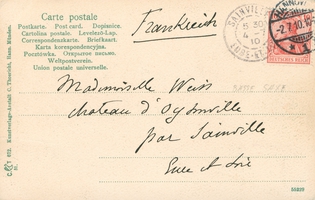 Carte postale
Postkarte. Post card. Dopisnice.
Cartolina postale. Levelező-Lap.
Correspondenzkarte. Briefkaart.
Karta korespondencyjna.
Pocztówka. Открытое письмо.
Weltpostverein.
Union postale universelle.
Frankreich
SAINVILLE
10
EURE-ET-
2.7.10.
DEUTSCHES REICH
Mademoiselle Weiss
chateau d'Oysonville
par Sainville
Eure et Loir
Kunstverlags-Anstalt C. Theovichi, Hann. Münden.
55929